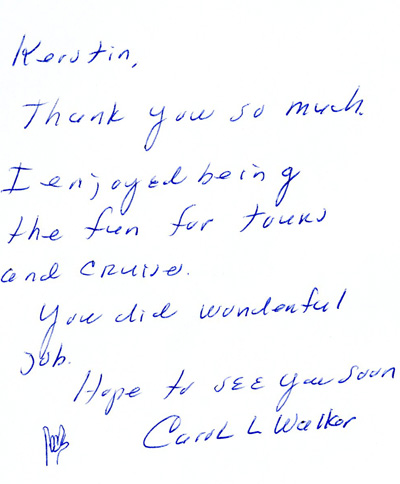 Kerstin,
Thank you so much.
I enjoyed being
the fun for tours
and cruise.
You did wonderful
job.
Hope to see you soon
Carol L Walker